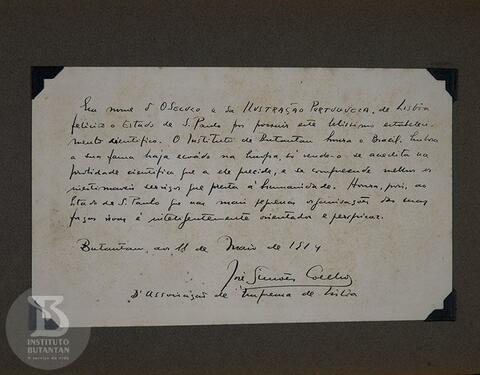 Em nome d'O SECULO e da ILUSTRAÇÃO PORTUGUEZA, de Lisbôa
felicito o Estado de S. Paulo por possuir este belissimo estabeleci-
mento scientifico. O Instituto de Butantan honra o Brazil. Embora
a sua fama haja echoado na Europa, só vendo-o se acredita na
probidade scientifica que a ele preside, e se comprehende melhor os
inestimaveis serviços que presta á humanidade. Honra, pois, ao
Estado de S. Paulo que nas mais pequenas organisações das suas
forças vivas é intelligentemente orientador e perspicaz.
Butantan, aos de Maio de 1914
José Simões Coelho
D'Associação de Imprensa de Lisbôa
INSTITUTO
BUTANTAN
A serviço da vida